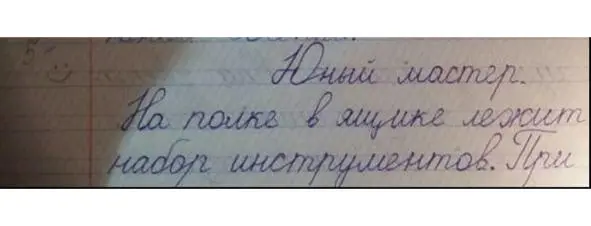 5
Юный мастер.
На полке в ящике лежит
набор инструментов. При